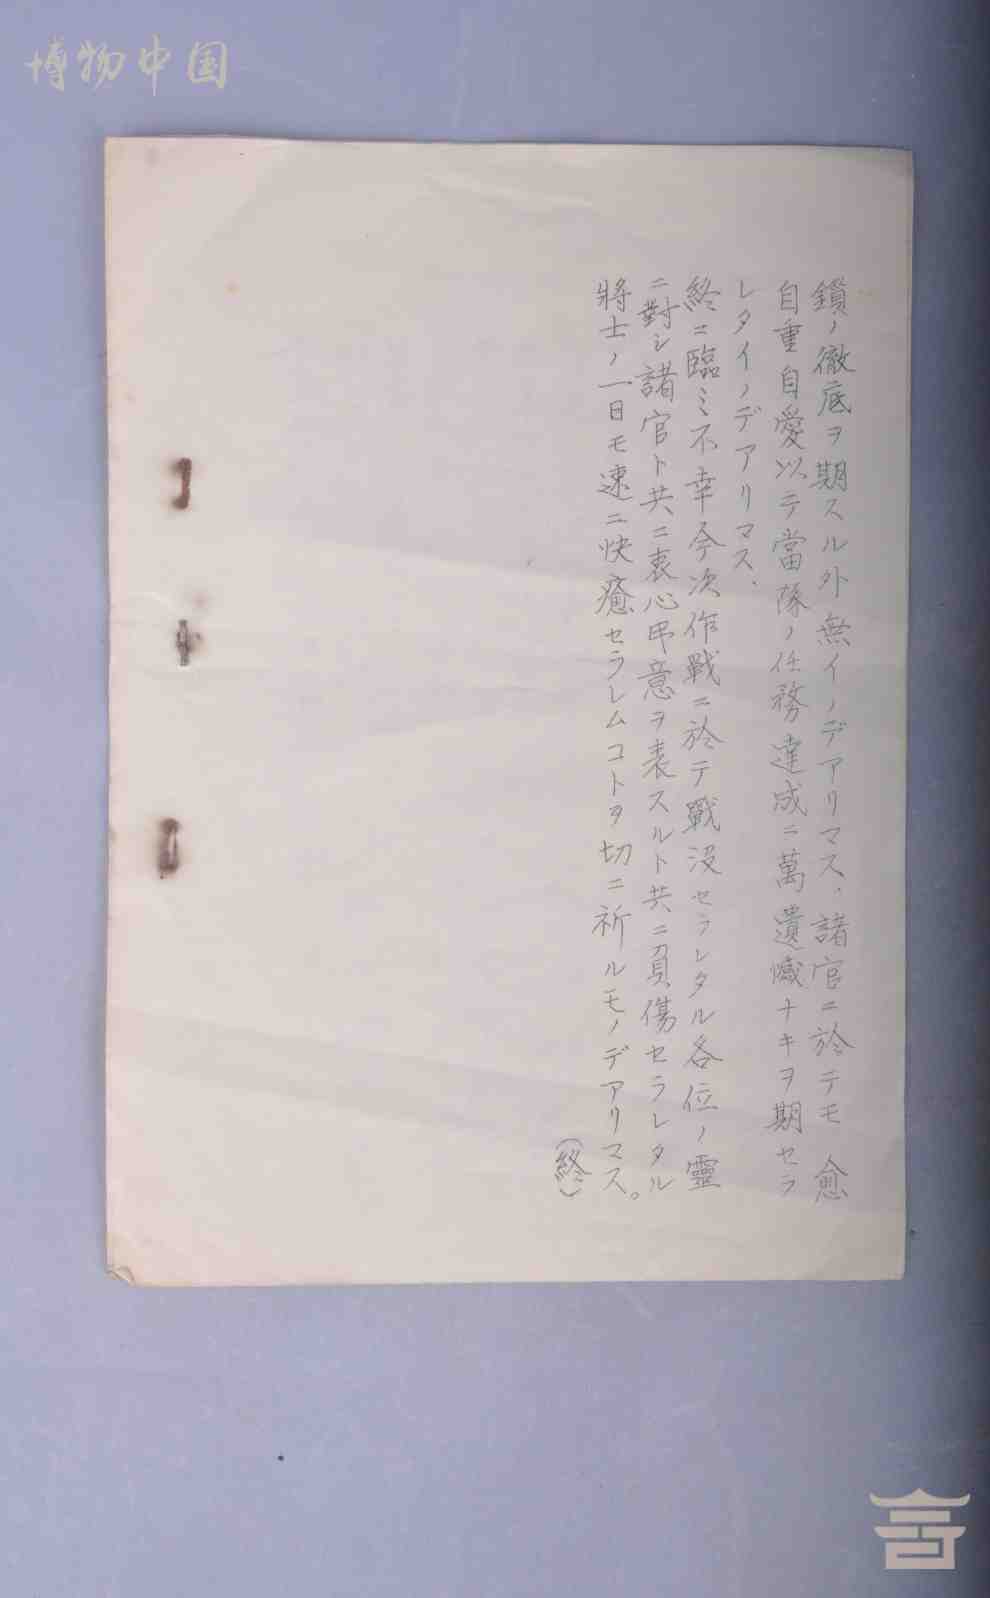 博物中国
鎖ノ徹底ヲ期スル外無イノデアリマス、諸官ニ於テモ愈
自重自愛以テ當隊ノ任務達成ニ萬遺憾ナキヲ期セラ
レタイノデアリマス、
終ニ臨ミ不幸今次作戰ニ於テ戰没セラレタル各位ノ靈
ニ對シ諸官ト共ニ衷心弔意ヲ表スルト共ニ負傷セラレタル
將士ノ一日モ速ニ快癒セラレムコトヲ切ニ祈ルモノデアリマス。
(終)